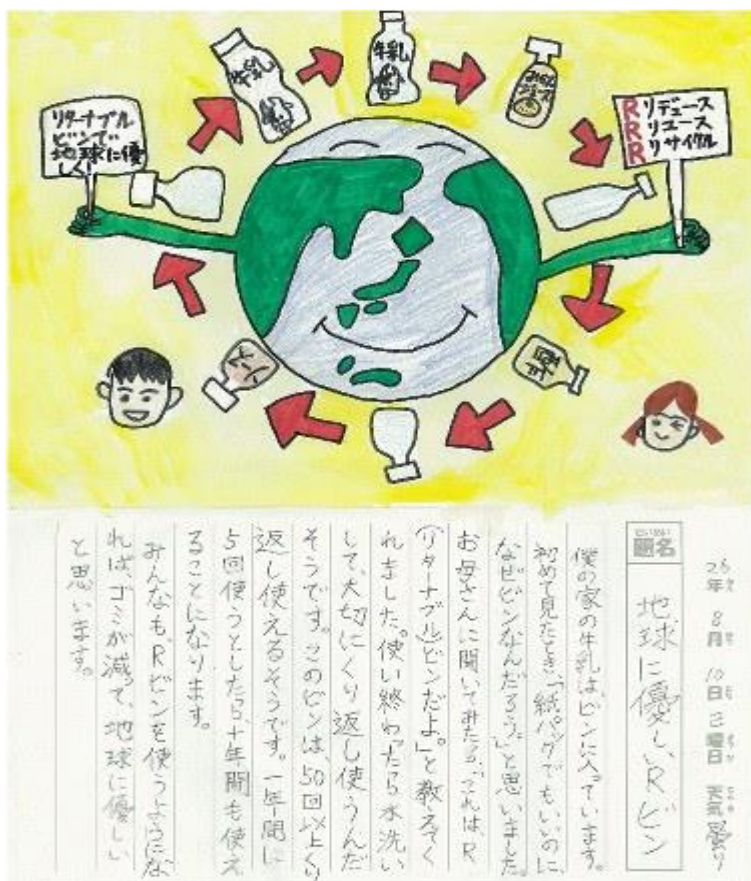 牛乳
牛乳
みかん
ジュース
リターナブル
ビンで
地球に優
しく！
R リデュース
R リユース
R リサイクル
酒
26年 8月 10日 日曜日 天気 曇り
題名
地球に優しいRビン
僕の家の牛乳は、ビンに入っています。
初めて見たとき、「紙パックでもいいのに、
なぜビンなんだろう。」と思いました。
お母さんに聞いてみたら、「これは、R
(リターナブル)ビンだよ。」と教えてく
れました。使い終わったら水洗い
して、大切にくり返し使うんだ
そうです。このビンは、50回以上くり
返し使えるそうです。一年間に
5回使うとしたら、十年間も使え
ることになります。
みんなも、Rビンを使うようにな
れば、ゴミが減って、地球に優しい
と思います。